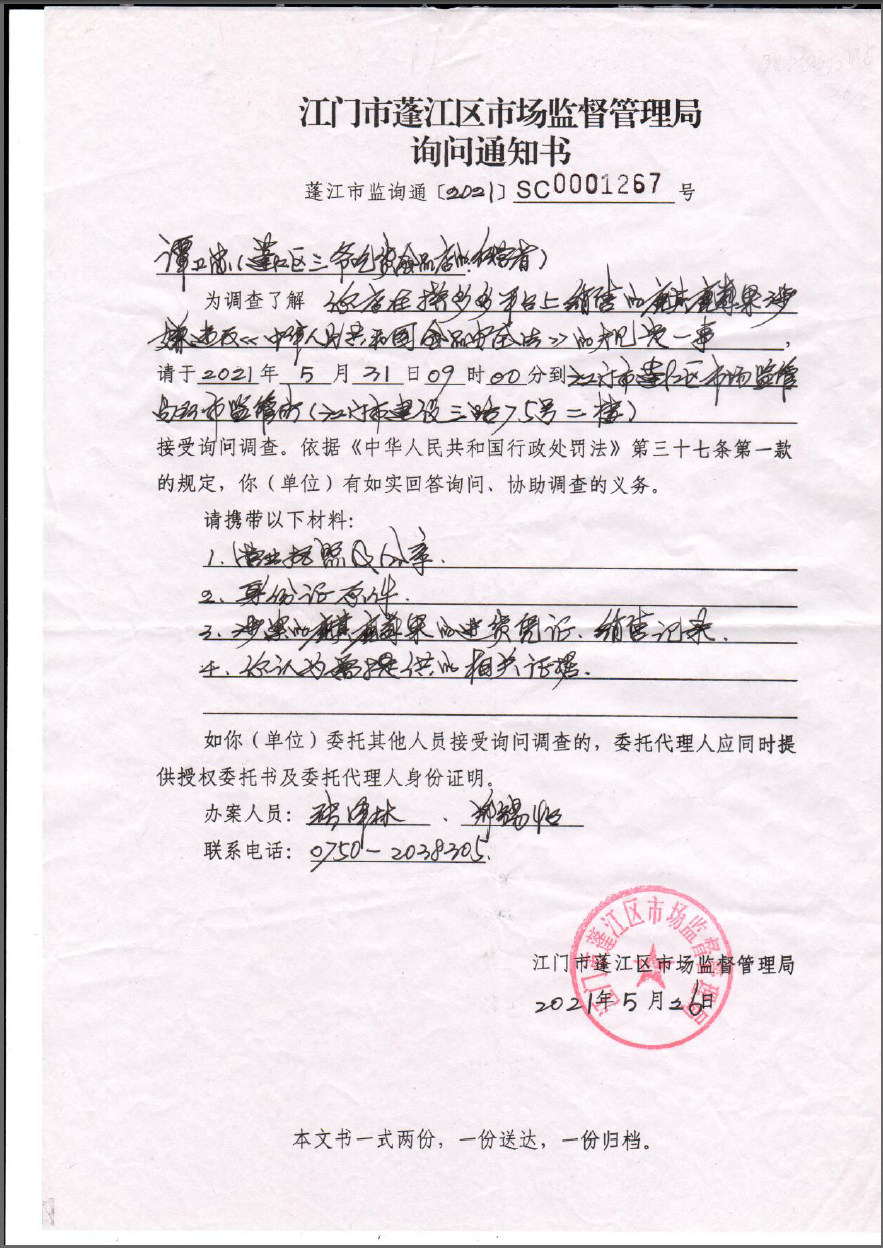 江门市蓬江区市场监督管理局
询问通知书
蓬江市监询通〔2021〕SC0001267号
谭卫浓(蓬江区三爷吃货食品店的经营者)
为调查了解 你店在拼多多平台上销售的麒麟蕃果涉
嫌违反《中华人民共和国食品安全法》的规定一事,
请于2021年5月31日09时00分到江门市蓬江区市场监管
市监管所(江门市建设三路75号二楼)
接受询问调查。依据《中华人民共和国行政处罚法》第三十七条第一款
的规定,你(单位)有如实回答询问、协助调查的义务。
请携带以下材料:
1.营业执照及公章.
2.身份证原件.
3.涉案的麒麟果的进货凭证、销售记录.
4.你认为需提供的相关证据.
如你(单位)委托其他人员接受询问调查的,委托代理人应同时提
供授权委托书及委托代理人身份证明。
办案人员: 、
联系电话:0750-2038305.
江门市蓬江区市场监督管理局
江门市蓬江区市场监督管理局
2021年5月26日
本文书一式两份,一份送达,一份归档。